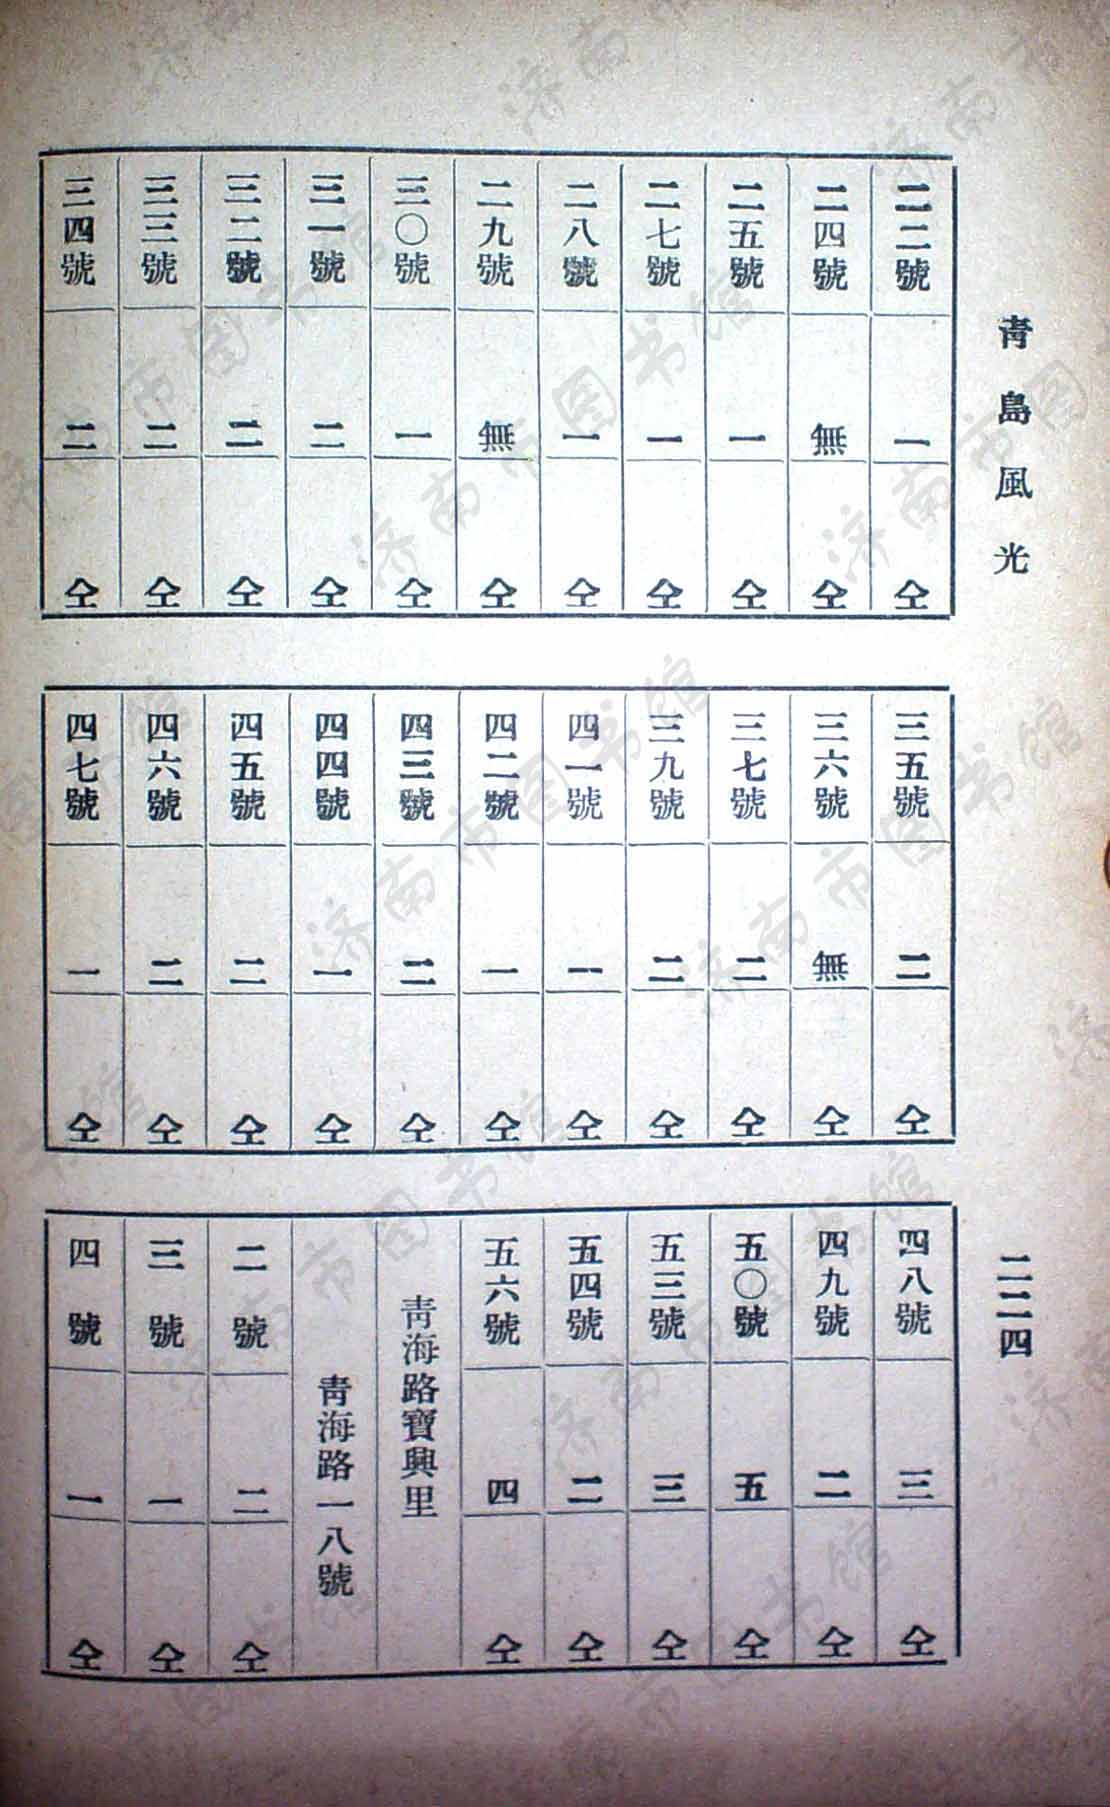 青島風光
二二四
二二號 一 仝
二四號 無 仝
二五號 一 仝
二七號 一 仝
二八號 一 仝
二九號 無 仝
三〇號 一 仝
三一號 二 仝
三二號 二 仝
三三號 二 仝
三四號 二 仝
三五號 二 仝
三六號 無 仝
三七號 二 仝
三九號 二 仝
四一號 一 仝
四二號 一 仝
四三號 二 仝
四四號 一 仝
四五號 二 仝
四六號 二 仝
四七號 一 仝
四八號 三 仝
四九號 二 仝
五〇號 五 仝
五三號 三 仝
五四號 二 仝
五六號 四 仝
青海路寶興里
青海路一八號
二號 二 仝
三號 一 仝
四號 一 仝
济南市图书馆